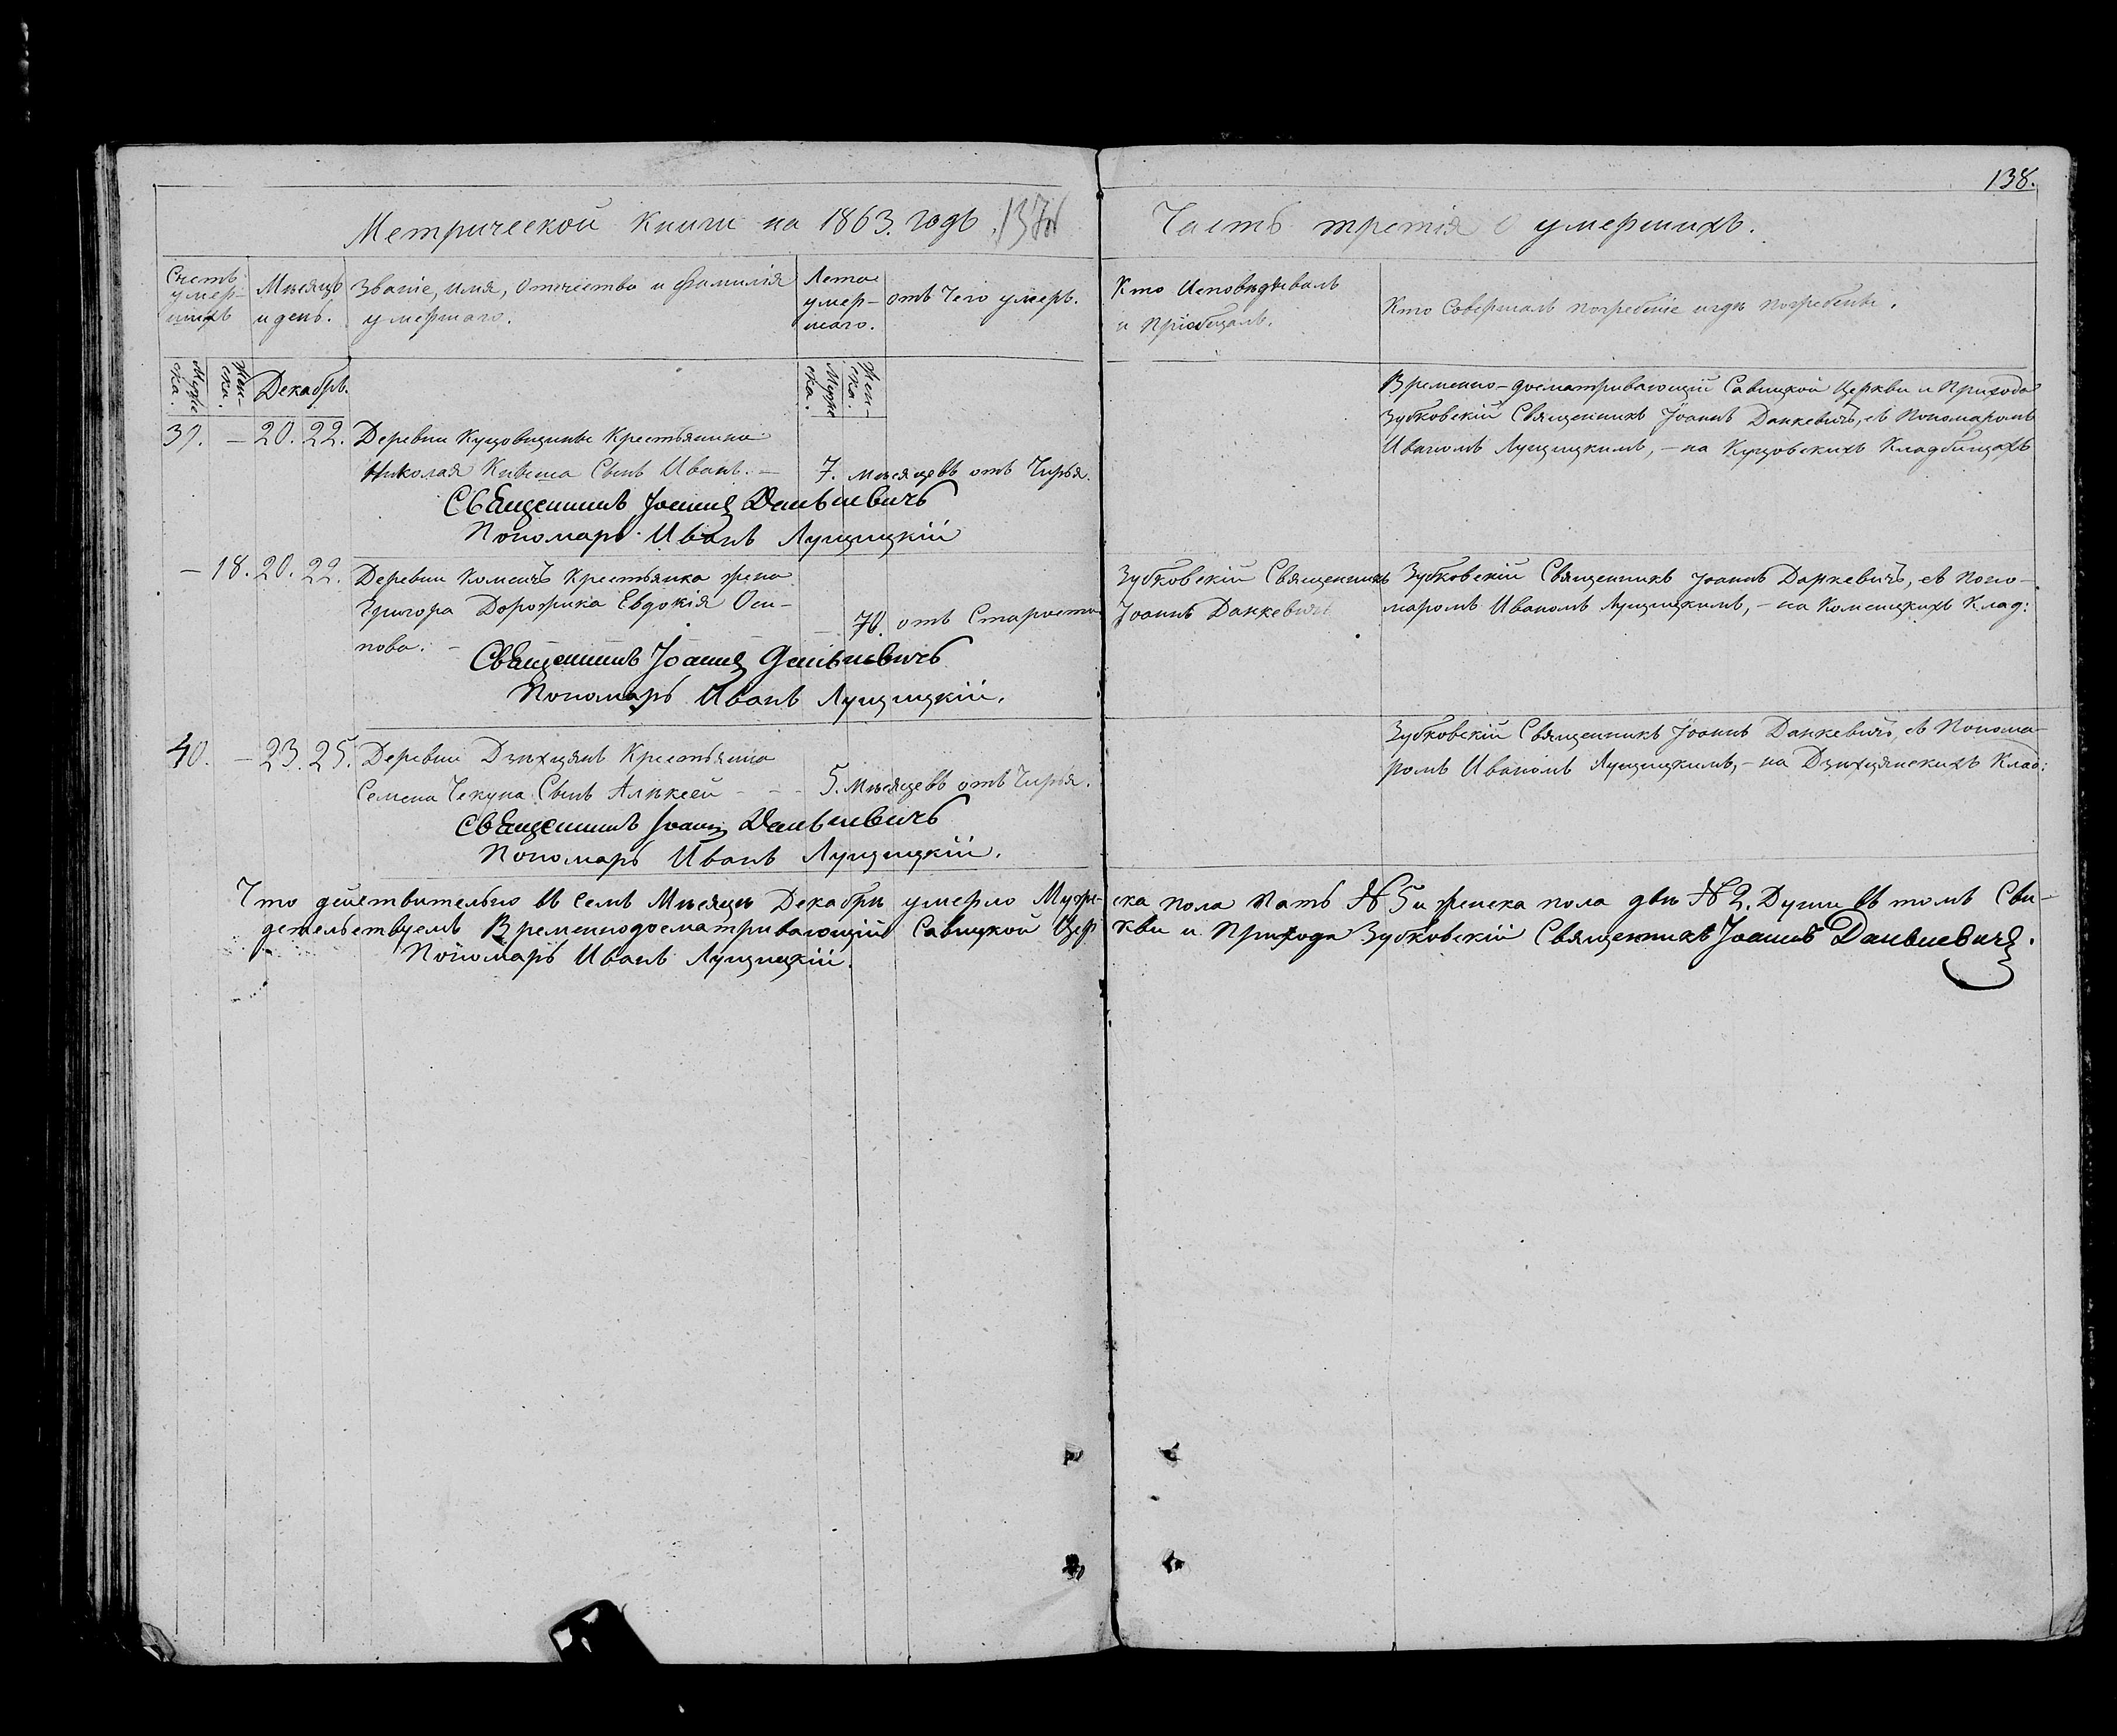 138.
Метрической книги на 1863. годъ.
Часть третія О умершихъ.
Счетъ умер-шихъ
Мѣсяцъ и день.
Званіе, имя, Отчество и Фамилія умершаго.
Лета умер-шаго.
отъ Чего умеръ.
Кто Исповѣдывалъ и Пріобщалъ.
Кто Совершалъ погребеніе и гдѣ погребены.
Муже-ска.
Жен-ска.
Декабрь.
Муже ска.
Жен-ска.
39. — 20. 22. Деревни Куцовщины Крестьянина
Николая Сынъ Иванъ. — 7. мѣсяцевъ отъ Чирья.
Священникъ Іоаннъ Данкевичъ
Пономарь Иванъ Лущицкій
Временно-досматривающій Савицкой Церкви и Прихода
Зубковскій Священникъ Іоаннъ Данкевичъ, съ Пономаромъ
Иваномъ Лущицкимъ, — на Куцовскихъ Кладбищахъ
— 18. 20. 22. Деревни Крестьянка жена
Григора Дорожка Евдокія Оси-
пова. — 70. отъ Старости
Священникъ Іоаннъ Данкевичъ
Пономарь Иванъ Лущицкій.
Зубковскій Священникъ
Іоаннъ Данкевичъ
Зубковскій Священникъ Іоаннъ Данкевичъ, съ Поно-
маромъ Иваномъ Лущицкимъ, — на Клад:
40. — 23. 25. Деревни Крестьянина
Семена Чекуна Сынъ Алѣксей - - - 5. Мѣсяцевъ отъ Чирья.
Священникъ Іоаннъ Данкевичъ
Пономарь Иванъ Лущицкій.
Зубковскій Священникъ Іоаннъ Данкевичъ, съ Понома-
ромъ Иваномъ Лущицкимъ, — на Клад:
Что действительно въ семъ Мѣсяцѣ Декабрѣ умерло Муже-ска пола Пать № 5 и женска пола двѣ № 2. Души въ томъ Сви-
детельствуемъ Временнодосматривающій Савицкой Церкви и Прихода Зубковскій Священникъ Іоаннъ Данкевичъ.
Пономарь Иванъ Лущицкій.